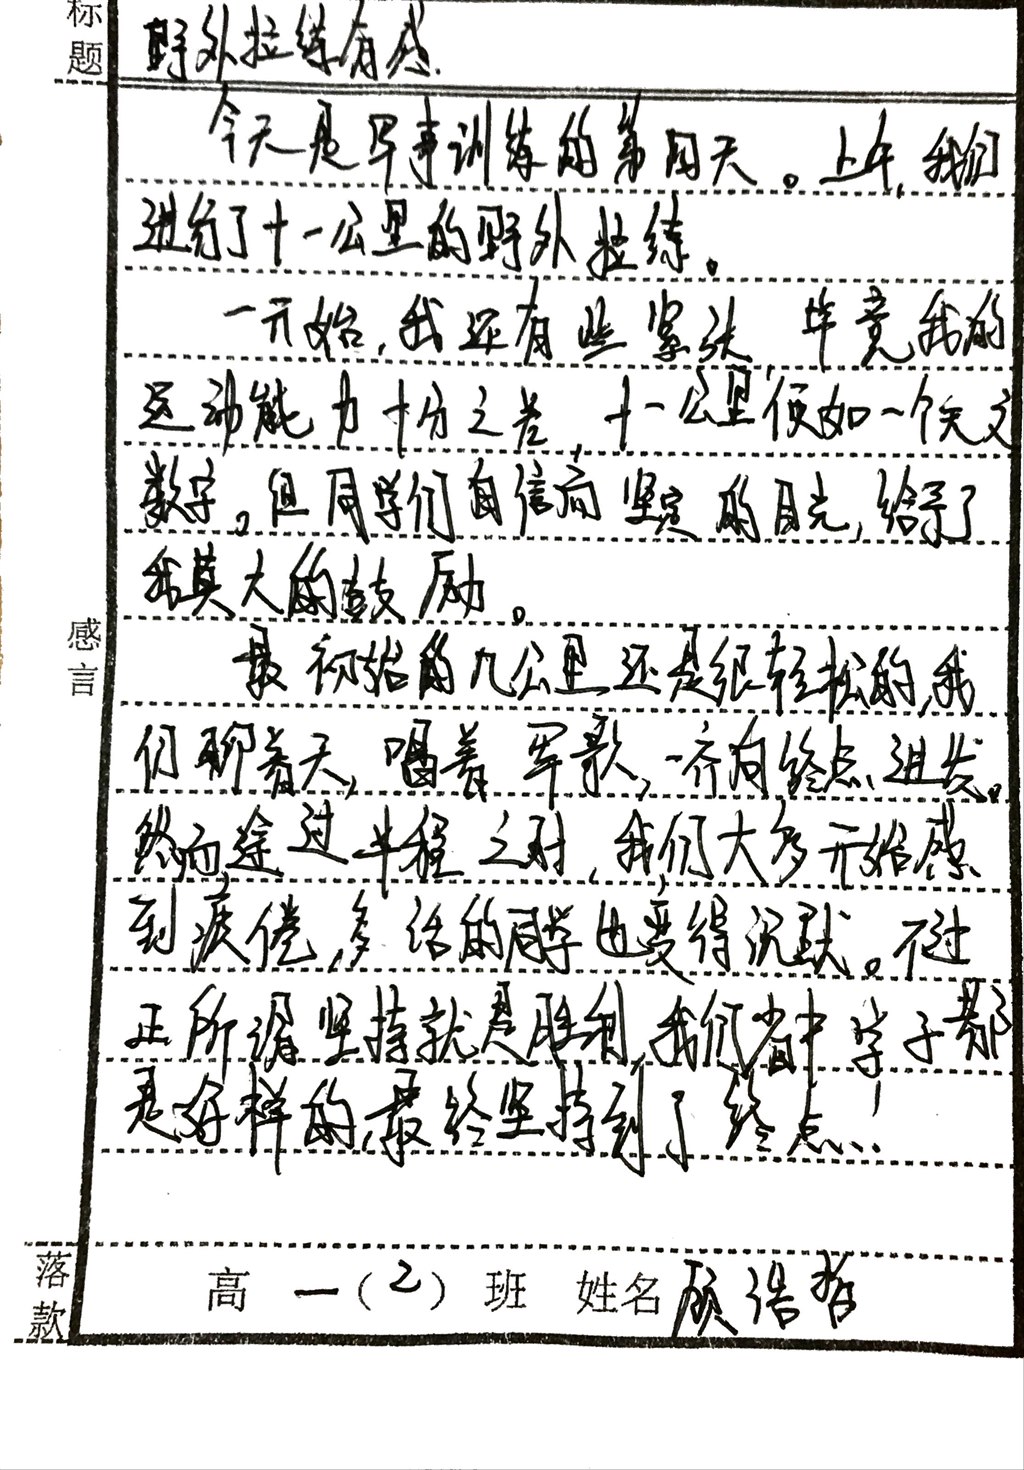 标题
野外拉练有感.
今天是军事训练的第四天。上午,我们
进行了十一公里的野外拉练。
一开始,我还有些紧张,毕竟我的
运动能力十分之差,十一公里便如一个天文
数字。但同学们自信而坚定的目光,给予了
我莫大的鼓励。
最初始的几公里还是很轻松的,我
们聊着天,唱着军歌,一齐向终点进发。
然而途过半程之时,我们大多开始感
到疲倦,多话的同学也变得沉默。不过
正所谓坚持就是胜利,我们省中学子都
是好样的,最终坚持到了终点!
感言
落款
高一(2)班 姓名 顾浩哲